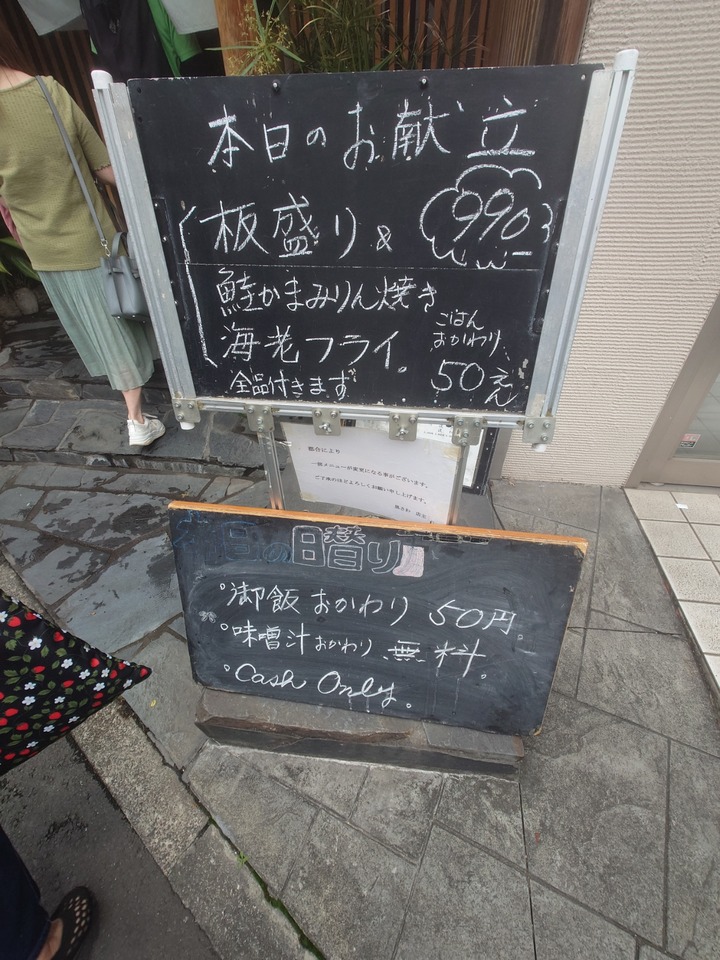 本日のお献立
板盛り & 990
鮭かまみりん焼き
海老フライ。
全品付きます
ごはん
おかわり、
50えん
都合により
一部メニューが変更になる事がございます。
ご了承のほどよろしくお願い申し上げます。
日の日替り
°御飯 おかわり 50円。
°味噌汁 おかわり 無料。
°Cash Only。